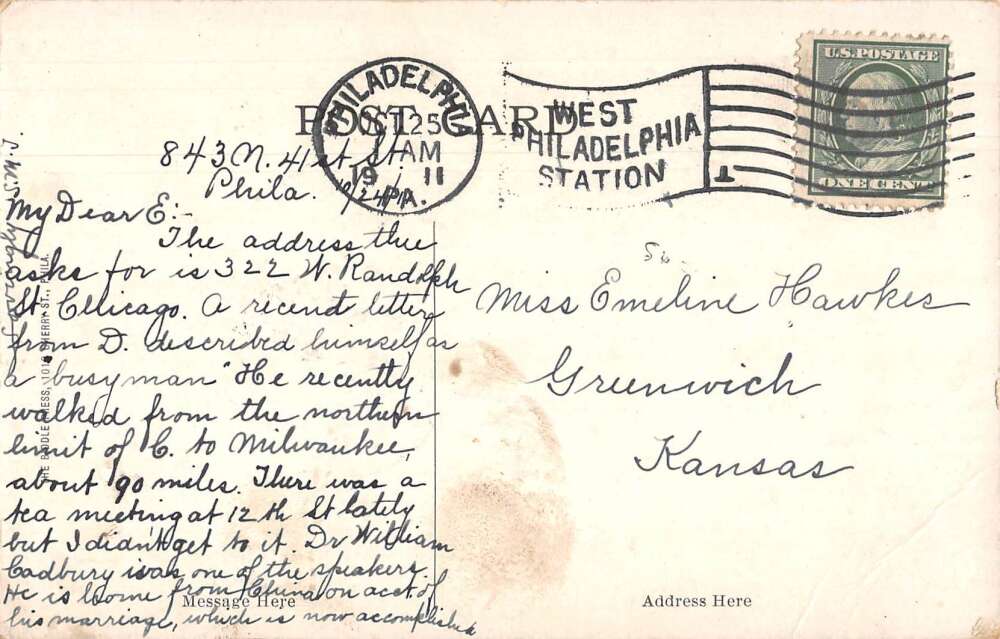 POST CARD
PHILADELPHIA
OCT 25
1 AM
19 11
PA.
WEST
PHILADELPHIA
STATION
U.S. POSTAGE
ONE CENT
843 N. 41st. St.
Phila. 10/24/11
My Dear E:-
The address thee
asks for is 322 W. Randolph
St. Chicago. A recent letter
from D. described himself as
a "busy man" He recently
walked from the northern
limit of C. to Milwaukee,
about 90 miles. There was a
tea meeting at 12th St lately
but I didn't get to it. Dr William
Cadbury was one of the speakers
He is home from China on acct of
his marriage, which is now accomplished
Lovingly
THE BIDDLE PRESS, 1010 CHERRY ST., PHILA.
Miss Emeline Hawkes
Greenwich
Kansas
Message Here
Address Here